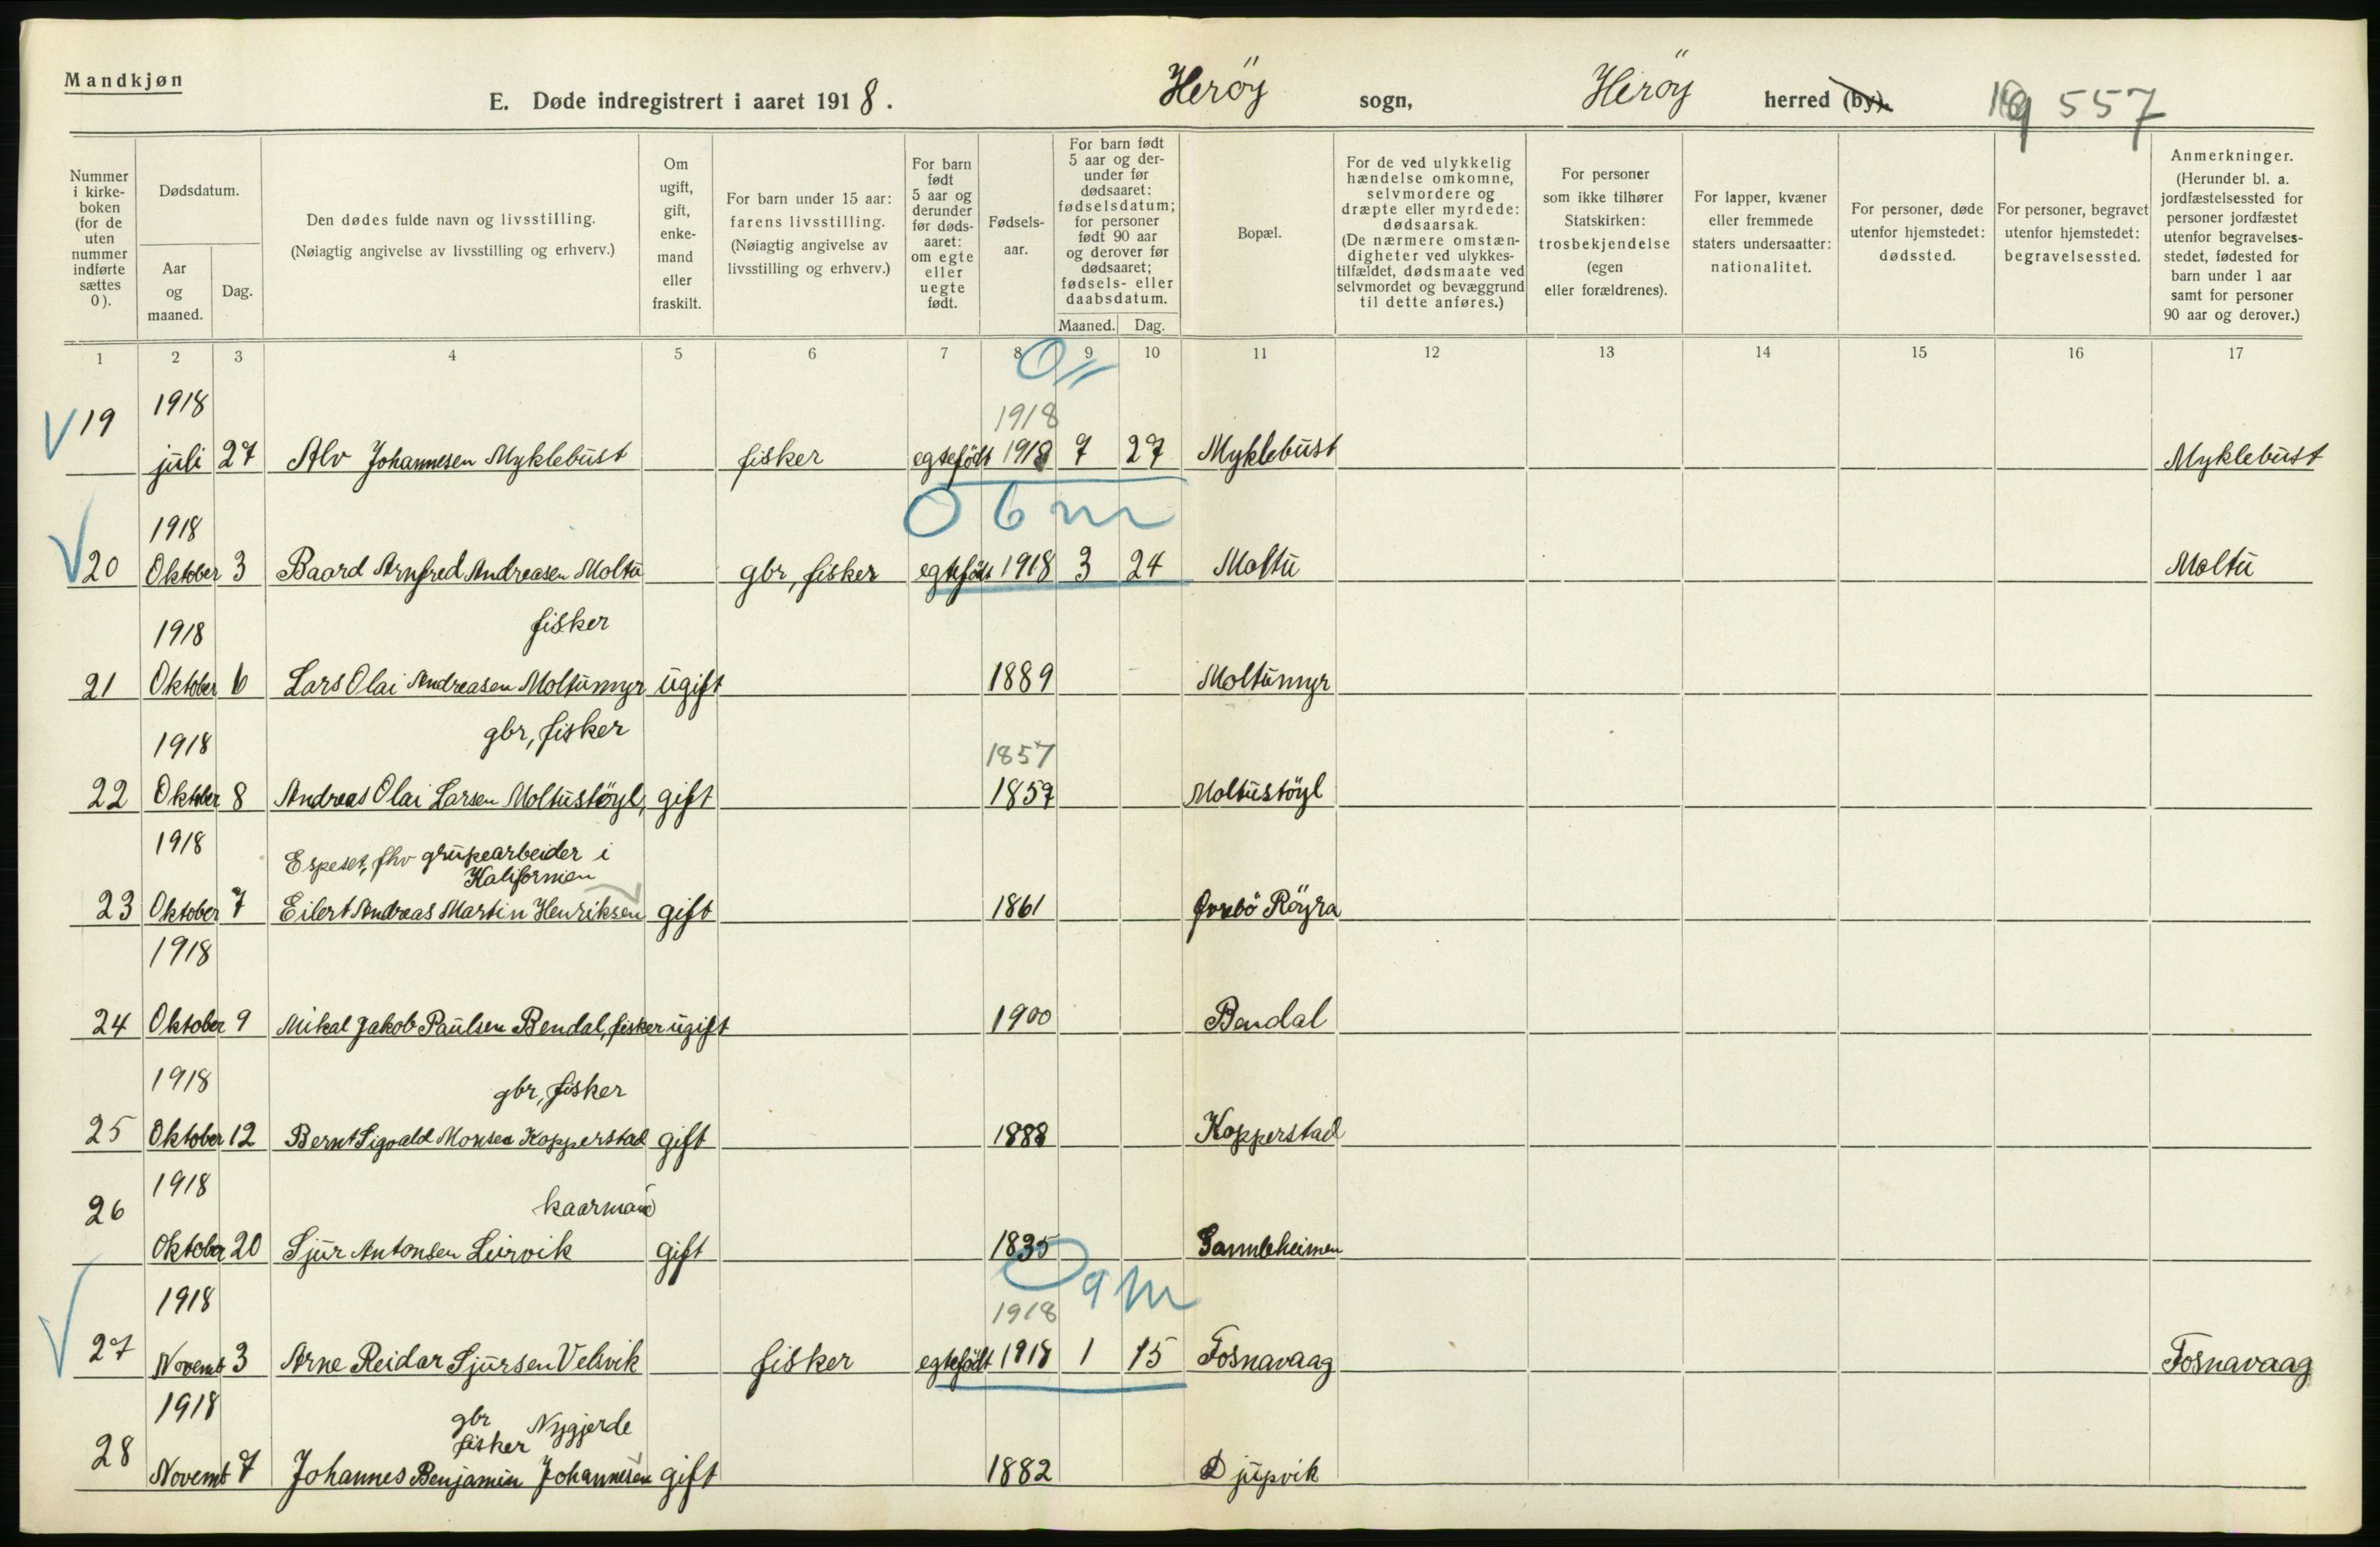 Mandkjøn
E. Døde indregistrert i aaret 1918. Heröy sogn, Heröy herred (by). 557
Nummer i kirkeboken (for de uten nummer indførte sættes 0).
Dødsdatum.
Aar og maaned.
Dag.
Den dødes fulde navn og livsstilling.
(Nøiagtig angivelse av livsstilling og erhverv.)
Om ugift, gift, enkemand eller fraskilt.
For barn under 15 aar: farens livsstilling.
(Nøiagtig angivelse av livsstilling og erhverv.)
For barn født 5 aar og derunder før dødsaaret: om egte eller uegte født.
Fødselsaar.
For barn født 5 aar og derunder før dødsaaret: fødselsdatum; for personer født 90 aar og derover før dødsaaret; fødsels- eller daabsdatum.
Maaned. Dag.
Bopæl.
For de ved ulykkelig hændelse omkomne, selvmordere og dræpte eller myrdede: dødsaarsak.
(De nærmere omstændigheter ved ulykkestilfældet, dødsmaate ved selvmordet og bevæggrund til dette anføres.)
For personer som ikke tilhører Statskirken: trosbekjendelse (egen eller forældrenes).
For lapper, kvæner eller fremmede staters undersaatter: nationalitet.
For personer, døde utenfor hjemstedet: dødssted.
For personer, begravet utenfor hjemstedet: begravelsessted.
Anmerkninger.
(Herunder bl. a. jordfæstelsessted for personer jordfæstet utenfor begravelsesstedet, fødested for barn under 1 aar samt for personer 90 aar og derover.)
1 2 3 4 5 6 7 8 9 10 11 12 13 14 15 16 17
0
1918 1918
19 juli 27 Alv Johannesen Myklebust fisker egtefödt 1918 7 27 Myklebust Myklebust
0 6 m
1918
20 Oktober 3 Baard Arnfred Andreasen Moltu gbr, fisker egtefödt 1918 3 24 Moltu Moltu
1918 fisker
21 Oktober 6 Lars Olai Andreasen Moltumyr ugift 1889 Moltumyr
1918 gbr, fisker 1857
22 Oktober 8 Andreas Olai Larsen Moltustöyl, gift 1857 Moltustöyl
1918 Espeset, fhv grupearbeider i
Kalifornien
23 Oktober 7 Eilert Andreas Martin Henriksen gift 1861 Röyra
1918
24 Oktober 9 Mikal Jakob Paulsen Bendal, fisker ugift 1900 Bendal
1918 gbr, fisker
25 Oktober 12 Bernt Sigvald Monsen Kopperstad gift 1888 Kopperstad
1918 kaarmand
26 Oktober 20 Sjur Antonsen Leirvik gift 1835 Gamleheimen
0 9 m
1918 1918
27 Novemb 3 Arne Reidar Sjursen Velsvik fisker egtefödt 1918 1 15 Fosnavaag Fosnavaag
1918 gbr Nygjerde
fisker
28 Novemb 7 Johannes Benjamin Johannesen gift 1882 Djupvik